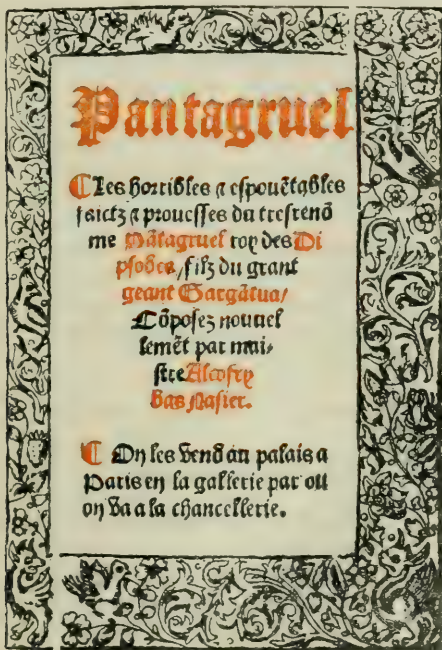 Pantagruel
❡ Les horribles ⁊ espouētables
faictz ⁊ prouesses du tresrenō
me Pātagruel roy des Di
psodes / filz du grant
geant Gargātua /
Cōposez nouuel
lemēt par mai-
stre Alcofry
bas Nasier.
❡ On les vend au palais a
Paris en la gallerie par ou
on va a la chancellerie.